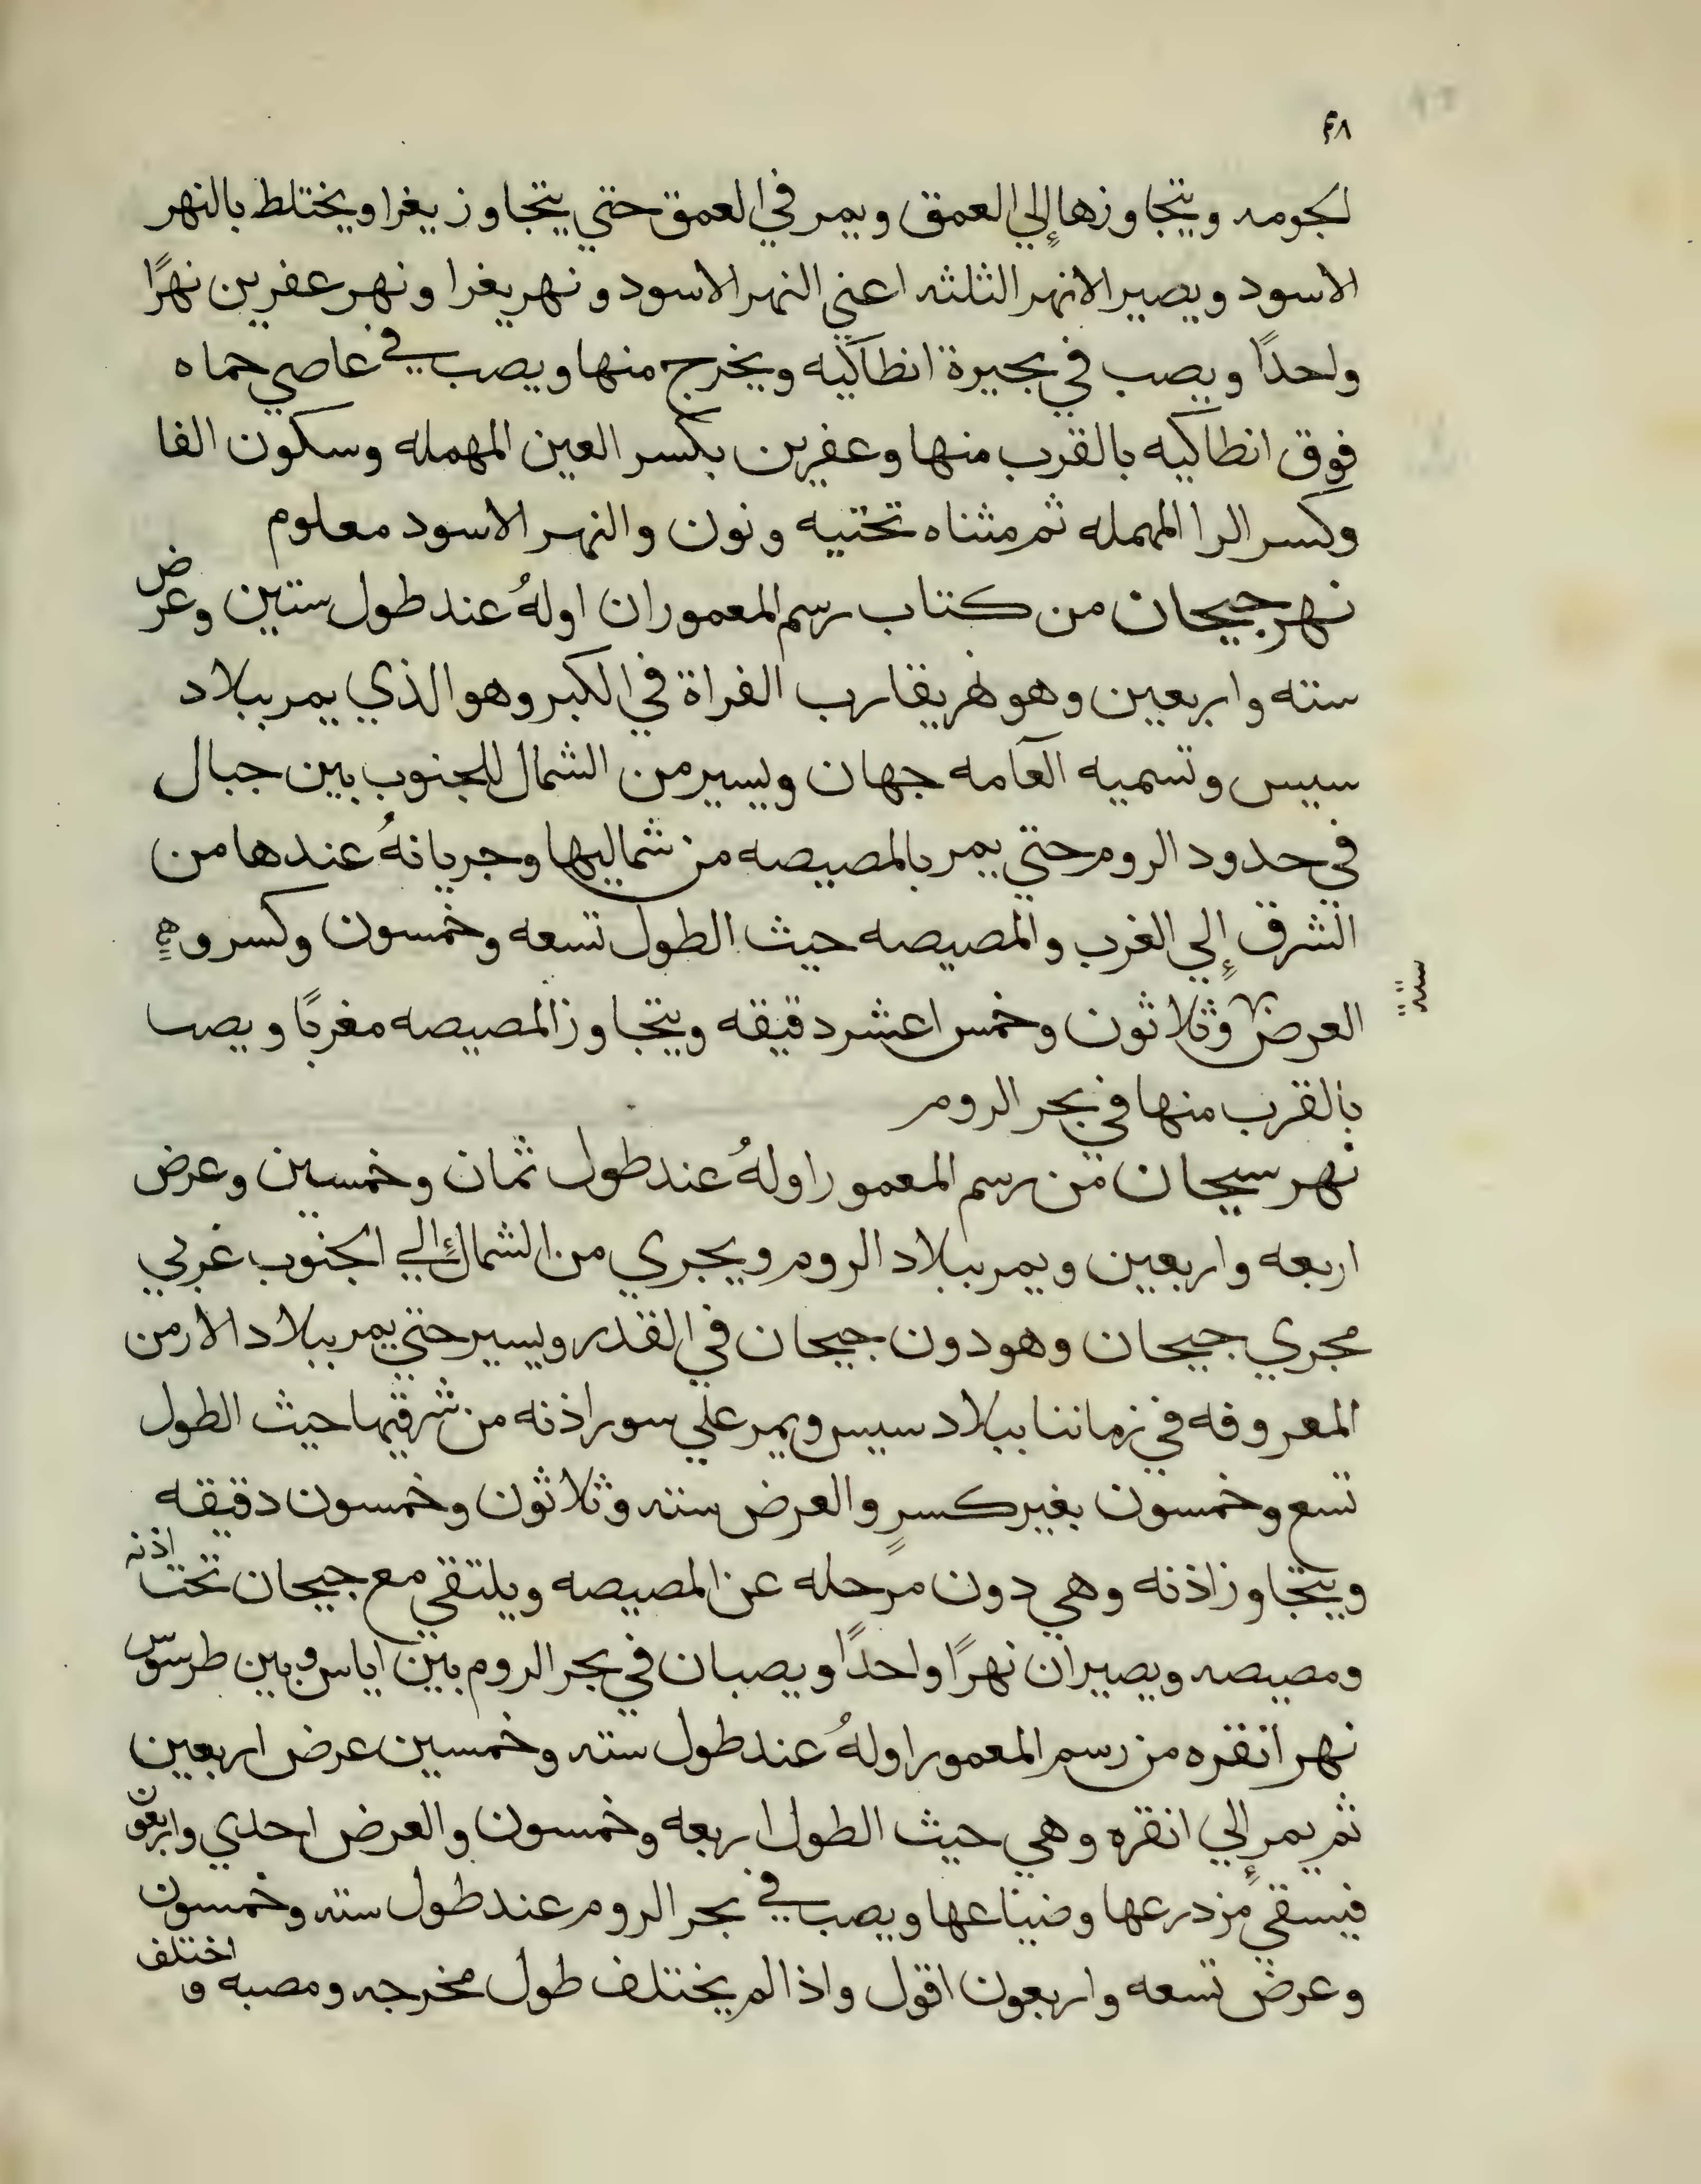 ۴۸
لجومه ويتجاوزها إلي العمق ويمر في العمق حتي يتجاوز يغرا ويختلط بالنهر
الاسود ويصير الانهر الثلثه اعني النهر الاسود ونهر يغرا ونهر عفرين نهرًا
واحدًا ويصب في بحيرة انطاكيه ويخرج منها ويصب في عاصي حماه
فوق انطاكيه بالقرب منها وعفرين بكسر العين المهمله وسكون الفا
وكسر الرا المهمله ثم مثناه تحتيه ونون والنهر الاسود معلوم
نهر جيحان من كتاب رسم المعمور ان اولهُ عند طول ستين وعرض
سته واربعين وهو نهر يقارب الفراة في الكبر وهو الذي يمر ببلاد
سيس وتسميه العامه جهان ويسير من الشمال للجنوب بين جبال
في حدود الروم حتي يمر بالمصيصه من شماليها وجريانهُ عندها من
الشرق إلي الغرب والمصيصه حيث الطول تسعه وخمسون وكسر و
العرض وثلاثون وخمس اعشر دقيقه ويتجاوز المصيصه مغربًا ويصب
ستة
بالقرب منها في بحر الروم
نهر سيحان من رسم المعمور اولهُ عند طول ثمان وخمسين وعرض
اربعه واربعين ويمر ببلاد الروم ويجري من الشمال إلي الجنوب غربي
مجري جيحان وهو دون جيحان في القدر ويسير حتي يمر ببلاد الارمن
المعروفه في زماننا ببلاد سيس ويمر علي سور اذنه من شرقيها حيث الطول
تسع وخمسون بغير كسرٍ والعرض سته وثلاثون وخمسون دقيقه
ويتجاوز اذنه وهي دون مرحله عن المصيصه ويلتقي مع جيحان تحت اذنه
ومصيصه ويصيران نهرًا واحدًا ويصبان في بحر الروم بين اياس وبين طرسوس
نهر انقره من رسم المعمور اولهُ عند طول سته وخمسين عرض اربعين
ثم يمر إلي انقره وهي حيث الطول اربعه وخمسون والعرض احدي واربعون
فيسقي مزدرعها وضياعها ويصب في بحر الروم عند طول سته وخمسون
وعرض تسعه واربعون اقول واذا لم يختلف طول مخرجه ومصبه و اختلف